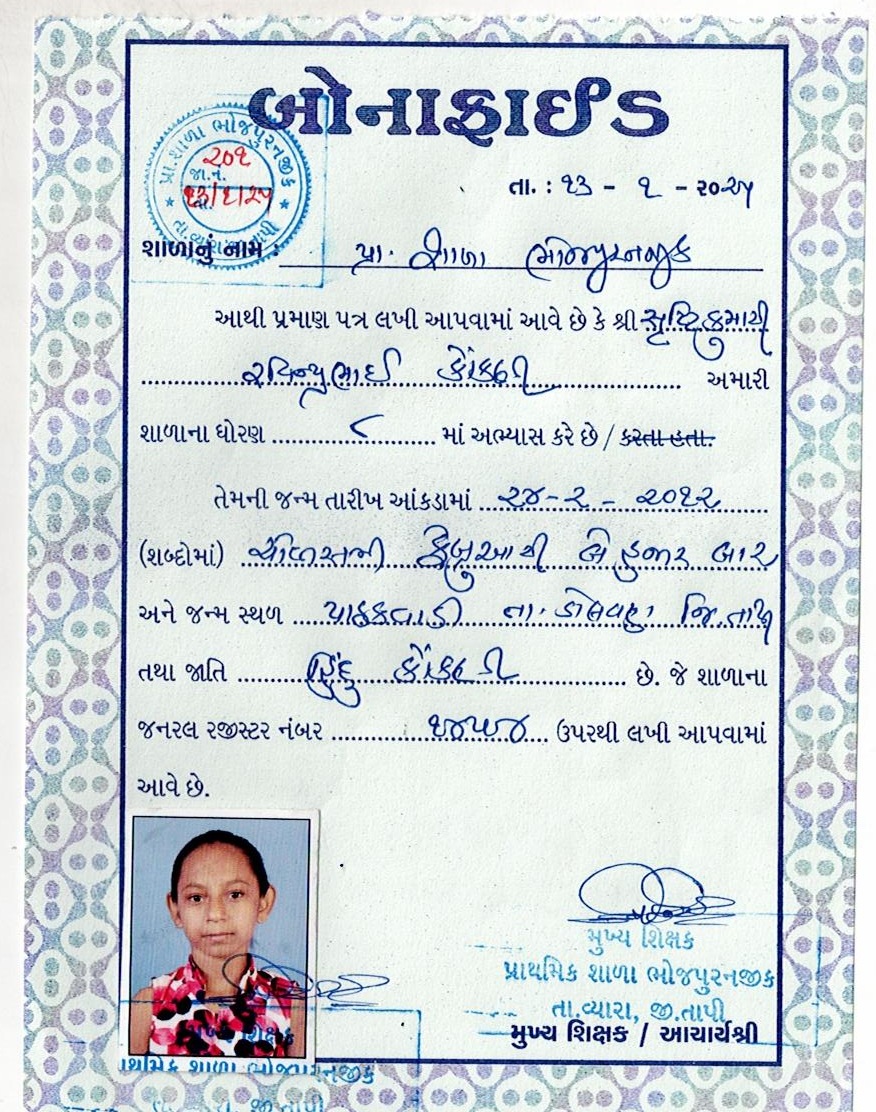 બોનાફાઈડ
પ્રા.શાળા ભોજપુરનજીક
જા.નં. ૨૦૧
તા. ૧૩/૧/૨૫
તા.વ્યારા જી.તાપી
તા. : ૧૩ - ૧ - ૨૦૨૫
શાળાનું નામ : પ્રા. શાળા ભોજપુરનજીક
આથી પ્રમાણ પત્ર લખી આપવામાં આવે છે કે શ્રી સૃષ્ટિકુમારી
કોંકણી અમારી
શાળાના ધોરણ ૮ માં અભ્યાસ કરે છે / કરતા હતા.
તેમની જન્મ તારીખ આંકડામાં ૨૪-૨-૨૦૧૨
(શબ્દોમાં) ચોવીસમી ફેબ્રુઆરી બે હજાર બાર
અને જન્મ સ્થળ તા. ડોલવણ જિ. તાપી
તથા જાતિ હિંદુ કોંકણી છે. જે શાળાના
જનરલ રજીસ્ટર નંબર ૧૪૫૪ ઉપરથી લખી આપવામાં
આવે છે.
મુખ્ય શિક્ષક
પ્રાથમિક શાળા ભોજપુરનજીક
તા.વ્યારા, જી.તાપી
મુખ્ય શિક્ષક / આચાર્યશ્રી
મુખ્ય શિક્ષક
પ્રાથમિક શાળા ભોજપુરનજીક
જી.તાપી